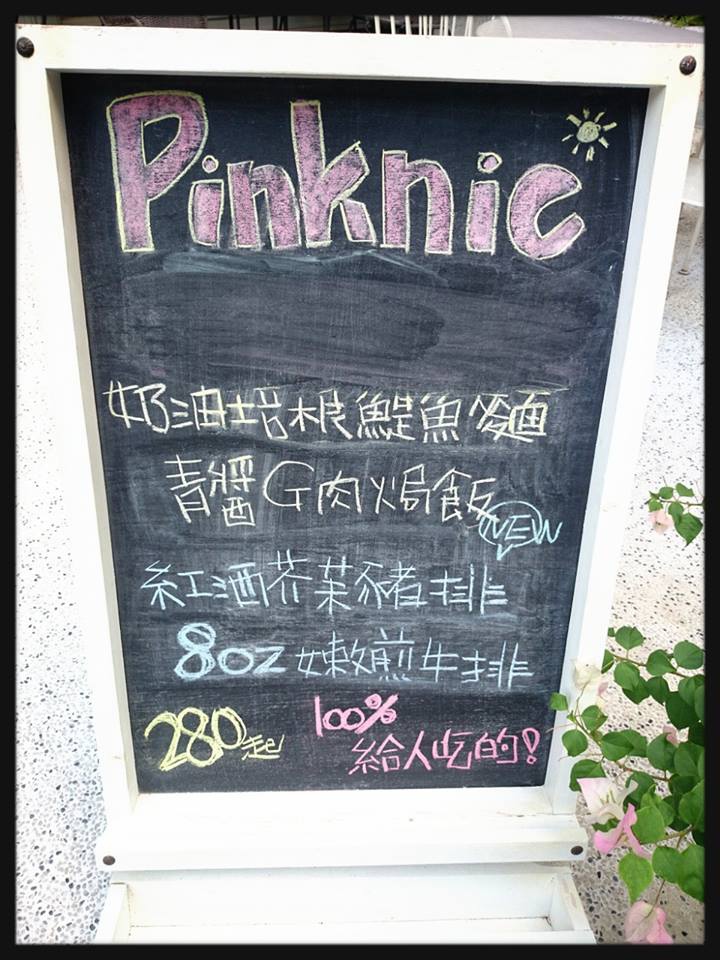 Pinknic
奶油培根鯷魚麵
青醬G肉焗飯
NEW
紅酒芥茉豬排
8oz嫩煎牛排
280起
100%
給人吃的!